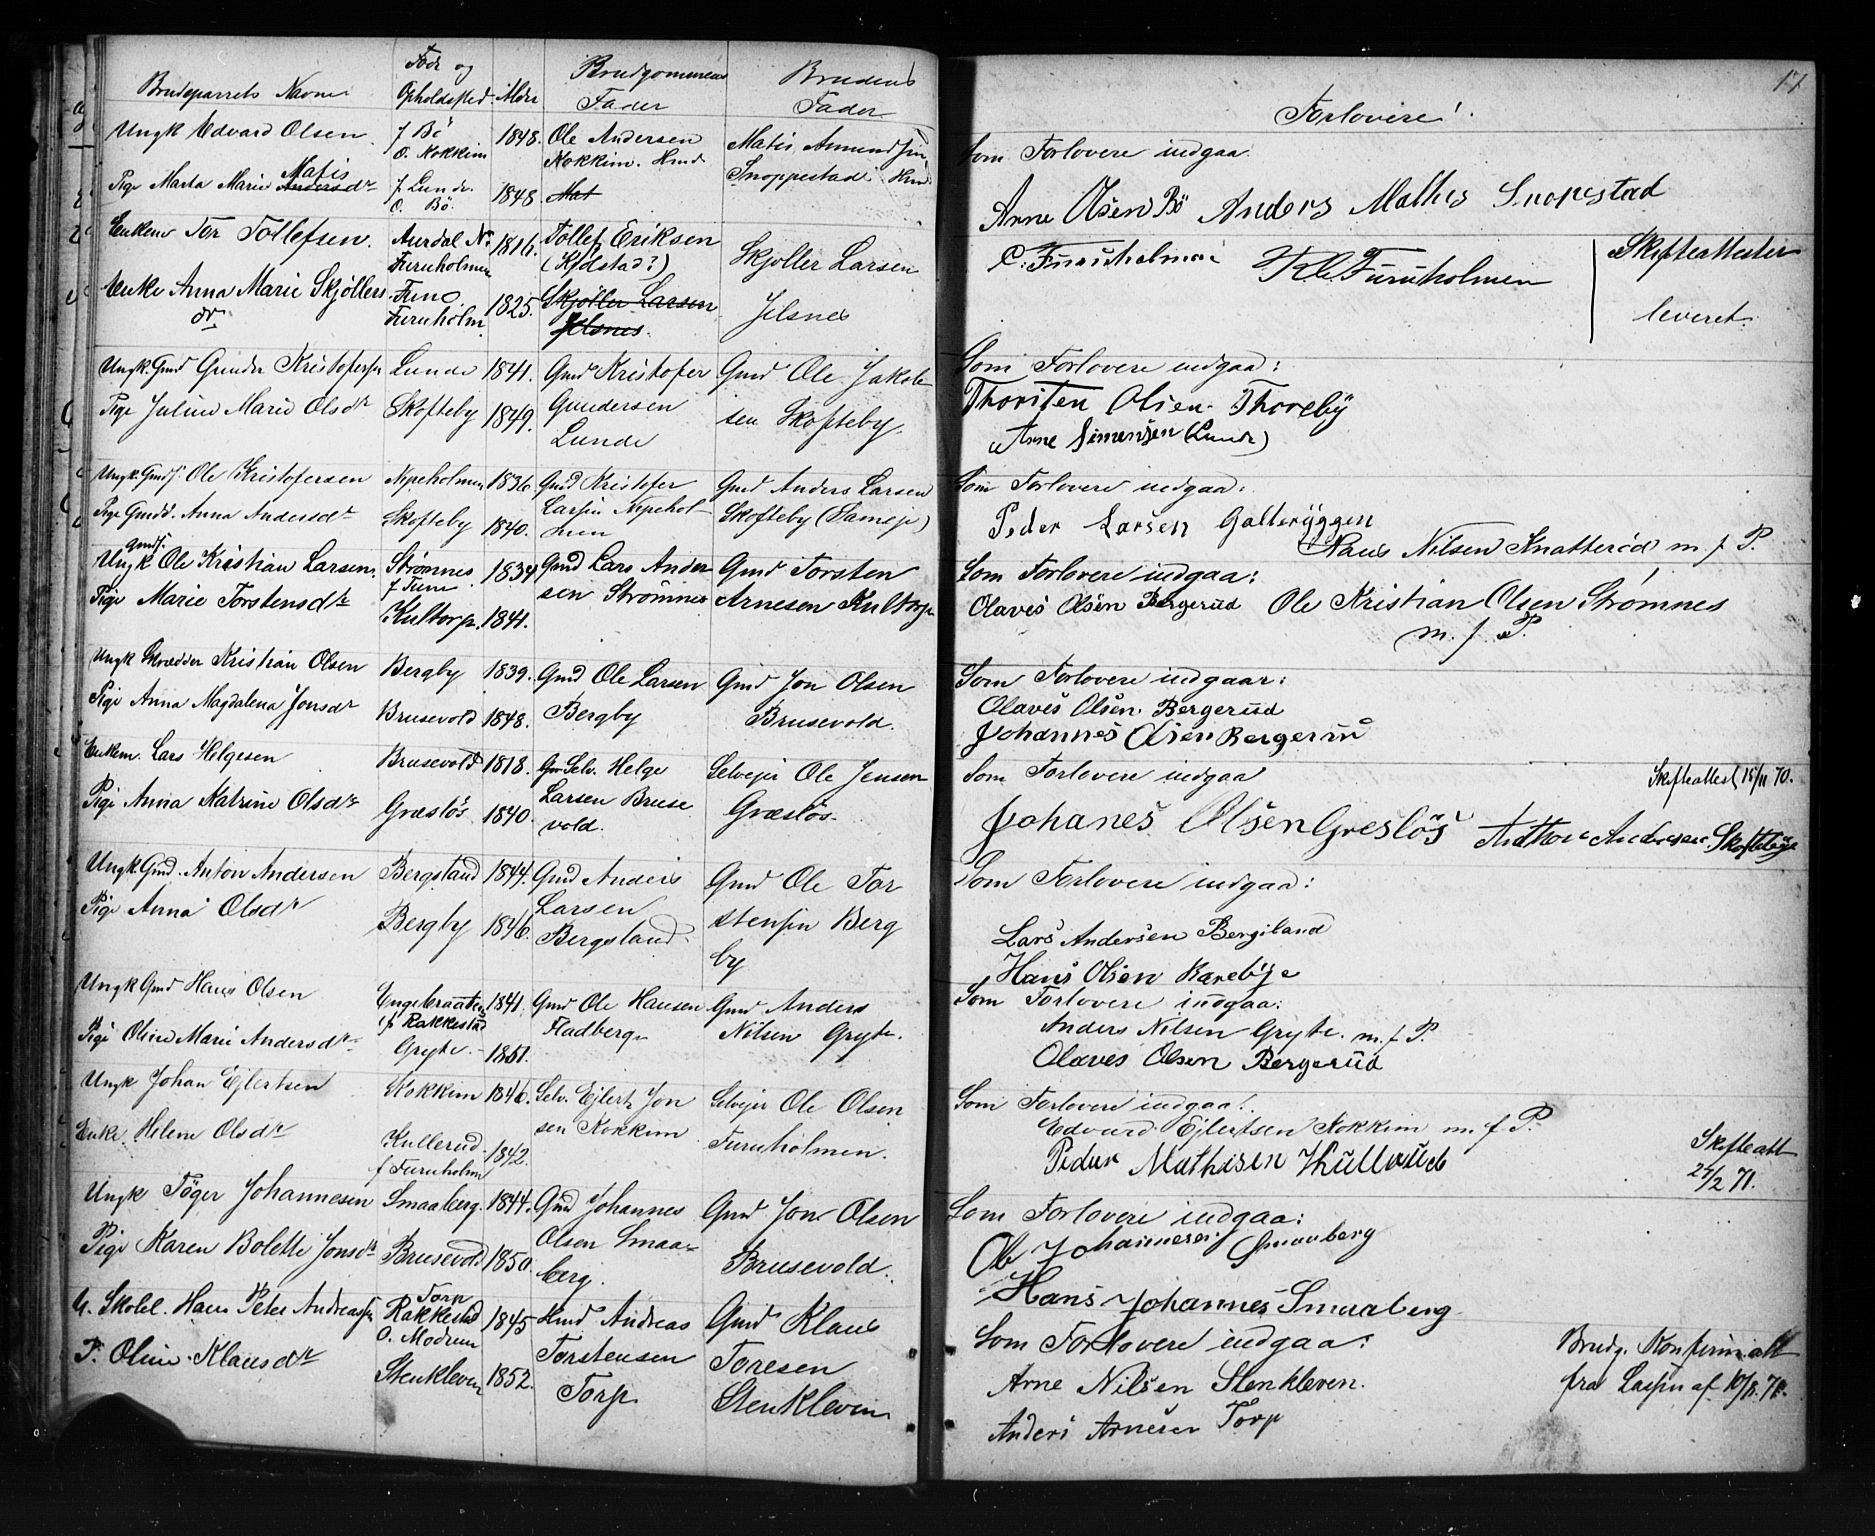 Brudeparrets Navne
Føde og
Opholdssted
Alder
Brudgommens
Fader
Brudens
Fader
Ungk Edvard Olsen
f Bö
O. Kokkim
1848.
Ole Andersen
Kokkim. Hmd
Matis Amundsen
Snoppestad Hmd
Matis
Pige Marta Marie Andersdr
f Lunde
O. Bö.
1848.
Mat
Enkem Tor Tollefsen.
Aurdal N.
Furuholmen
1816.
Tollef Eriksen
(Kjölstad?)
Skjoller Larsen
Enke Anna Marie Skjöllers
dr
Tune
Furuholm.
1825.
Skjöller Larsen
Jelsnes.
Jelsnes
Ungk. Gmd Gunder Kristofersen
Lunde
1841.
Gmd Kristofer
Gmd Ole Jakob
Pige Juline Marie Olsdr
Skofteby
1849.
Gundersen
Lunde
sen Skofteby.
Ungk. Gmds. Ole Kristofersen
Nypeholmen
1836.
Gmd Kristofer
Gmd Anders Larsen
Pige Gmdd. Anna Andersdr
Skofteby
1840.
Larsen Nypehol
men
Skofteby
Gmds.
Ungk Ole Kristian Larsen.
Strömnes
f Tune
1834
Gmd Lars Ander
sen Strömnes
Gmd Torsten
Arnesen Kultorp
Pige Marie Torstensdtr
Kultorp.
1841.
Ungk Skrædder Kristian Olsen
Bergby
1839.
Gmd Ole Larsen
Gmd Jon Olsen
Pige Anna Magdalena Jonsdr
Brusevold
1848.
Bergby
Brusevold.
Enkem. Lars Helgesen
Brusevold
1818.
Selv. Helge
Selvejer Ole Jensen
Pige Anna Katrine Olsdtr
Græslös
1840.
Larsen Bruse
vold.
Græslös.
Ungk. Gmd. Anton Andersen
Bergstand
1844.
Gmd Anders
Gmd Ole Tor
Pige Anna Olsdtr
Bergby
1846.
Larsen
Bergstand.
stensen Berg
by
Ungk Gmd Hans Olsen
Engebraaten
f Rakkestad
1841.
Gmd Ole Hansen
Fladberg.
Gmd Anders
Nilsen Gryte.
Pige Oline Marie Andersdr.
Gryte.
1851.
Ungk Johan Ejlertsen
Kokkim
1846.
Selv. Ejlert Jon
Selvejer Ole Olsen
Enke. Helene Olsdtr
Kullerud
f Furuholmen
1842.
sen Kokkim
Furuholmen.
Ungk Töger Johannesen
Smaaberg.
1844.
Gmd Johannes
Gmd Jon Olsen
Pige Karen Bolette Jonsdr
Brusevold
1850.
Olsen Smaa
berg.
Brusevold.
U. Skolel. Hans Peter Andreassen
Torp
Rakkestad
O. Modum
1845
Hmd Andreas
Gmd Klaus
P. Oline Klausdtr
Stenkleven
1852.
Torstensen
Torp
Toresen
Stenkleven
17
Forlovere!
Som Forlovere indgaa
Arne Olsen Bö Anders Mathis Snopestad
C. Furuholmen Furuholmen
Skifteattester
leveret.
Som Forlovere indgaa:
Thorsten Olsen Thoreby
Arne Simensen (Lunde)
Som Forlovere indgaa:
Peder Larsen Galteryggen
Hans Nilsen Knatteröd m. f P.
Som Forlovere indgaa:
Olaves Olsen Bergerud Ole Kristian Olsen Strømnes
m. f. P.
Som Forlovere indgaar:
Olaves Olsen Bergerud
Johannes Olsen Bergerud
Som Forlovere indgaa
Skifteattest 15/11 70.
Johanes Olsen Greslös Anthon Andersen Skoftebye
Som Forlovere indgaa:
Lars Andersen Bergstand
Hans Olsen Karebye
Som Forlovere indgaa:
Anders Nilsen Gryte. m. f P.
Olaves Olsen Bergerud
Som Forlovere indgaa:
Edvard Ejlertsen Kokkim m. f P.
Peder Mathisen Kullerud
Skifteatt
27/2 71.
Som Forlovere indgaa:
Ole Johannesen Smaaberg
Hans Johannes Smaaberg
Som Forlovere indgaa:
Arne Nilsen Stenkleven.
Anders Arnesen Torp
Brudg. Konfirm.att
fra